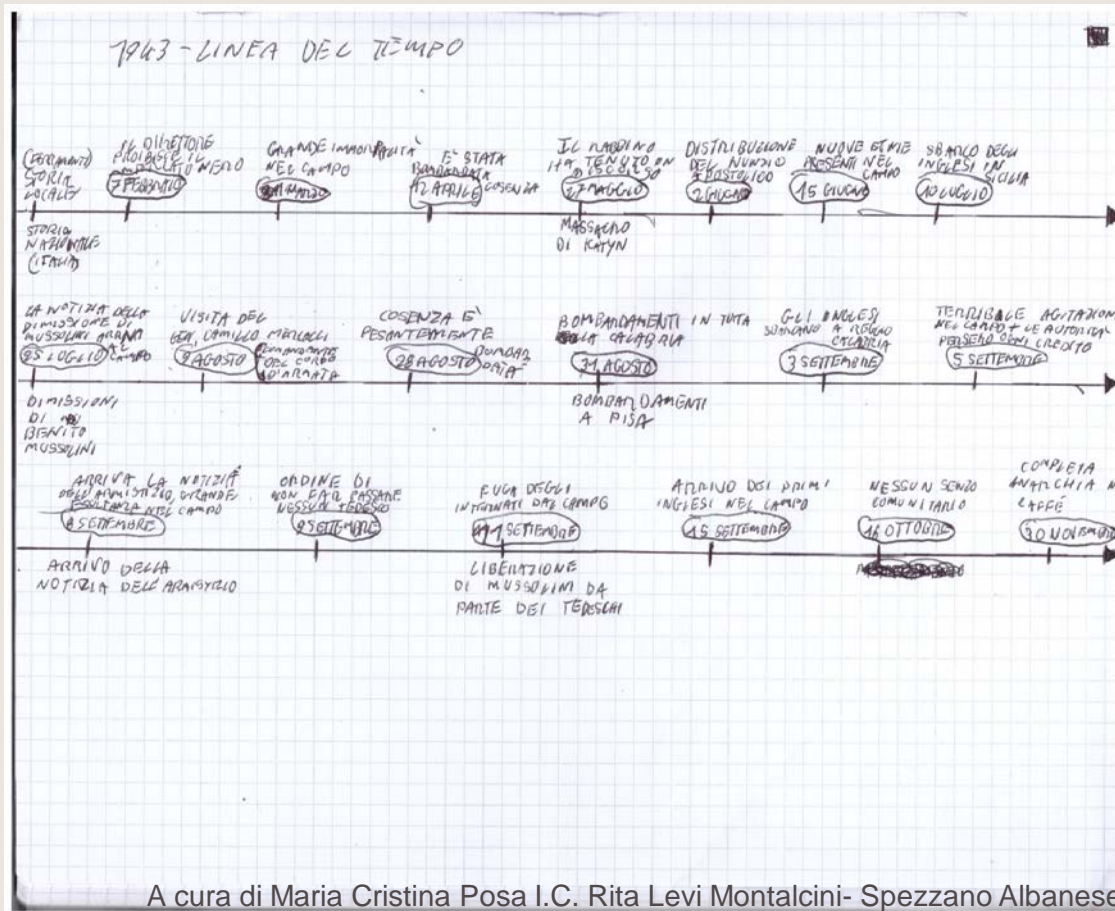 1943 - LINEA DEL TEMPO
(FERRAMONTI)
STORIA
LOCALE
IL DIRETTORE
PROIBISCE IL
MERCATO NERO
7 FEBBRAIO
GRANDE IMMORALITÀ
NEL CAMPO
MARZO
E' STATA
BOMBARDATA
12 APRILE COSENZA
IL RABBINO
HA TENUTO UN
DISCORSO
27 MAGGIO
DISTRIBUZIONE
DEL NUNZIO
APOSTOLICO
2 GIUGNO
NUOVE ETNIE
PRESENTI NEL
CAMPO
15 GIUGNO
SBARCO DEGLI
INGLESI IN
SICILIA
10 LUGLIO
STORIA
NAZIONALE
(ITALIA)
MASSACRO
DI KATYN
LA NOTIZIA DELLA
DIMISSIONE DI
MUSSOLINI ARRIVA
25 LUGLIO CAMPO
VISITA DEL
GEN. CAMILLO MERCALLI
9 AGOSTO COMANDANTE
DEL CORPO
D'ARMATA
COSENZA E'
PESANTEMENTE
28 AGOSTO BOMBAR
DATA
BOMBARDAMENTI IN TUTTA
LA CALABRIA
31 AGOSTO
GLI INGLESI
SBARCANO A REGGIO
CALABRIA
3 SETTEMBRE
TERRIBILE AGITAZIONE
NEL CAMPO + LE AUTORITA'
PERSERO OGNI CREDITO
5 SETTEMBRE
DIMISSIONI
DI
BENITO
MUSSOLINI
BOMBARDAMENTI
A PISA
ARRIVA LA NOTIZIA
DELL'ARMISTIZIO, GRANDE
ESULTANZA NEL CAMPO
8 SETTEMBRE
ORDINE DI
NON FAR PASSARE
NESSUN TEDESCO
9 SETTEMBRE
FUGA DEGLI
INTERNATI DAL CAMPO
SETTEMBRE
ARRIVO DEI PRIMI
INGLESI NEL CAMPO
15 SETTEMBRE
NESSUN SENSO
COMUNITARIO
16 OTTOBRE
COMPLETA
ANARCHIA N
CAFFÉ
30 NOVEMBRE
ARRIVO DELLA
NOTIZIA DELL'ARMISTIZIO
LIBERAZIONE
DI MUSSOLINI DA
PARTE DEI TEDESCHI
A cura di Maria Cristina Posa I.C. Rita Levi Montalcini- Spezzano Albanese